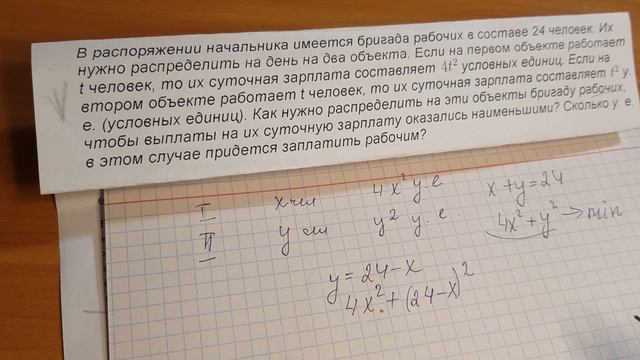 В распоряжении начальника имеется бригада рабочих в составе 24 человек. Их
нужно распределить на день на два объекта. Если на первом объекте работает
t человек, то их суточная зарплата составляет 4t² условных единиц. Если на
втором объекте работает t человек, то их суточная зарплата составляет t² у.
е. (условных единиц). Как нужно распределить на эти объекты бригаду рабочих,
чтобы выплаты на их суточную зарплату оказались наименьшими? Сколько у. е.
в этом случае придется заплатить рабочим?
I x чел 4x² у.е x+y=24
II y чел y² у.е. 4x²+y² → min
y=24-x
4x²+(24-x)²